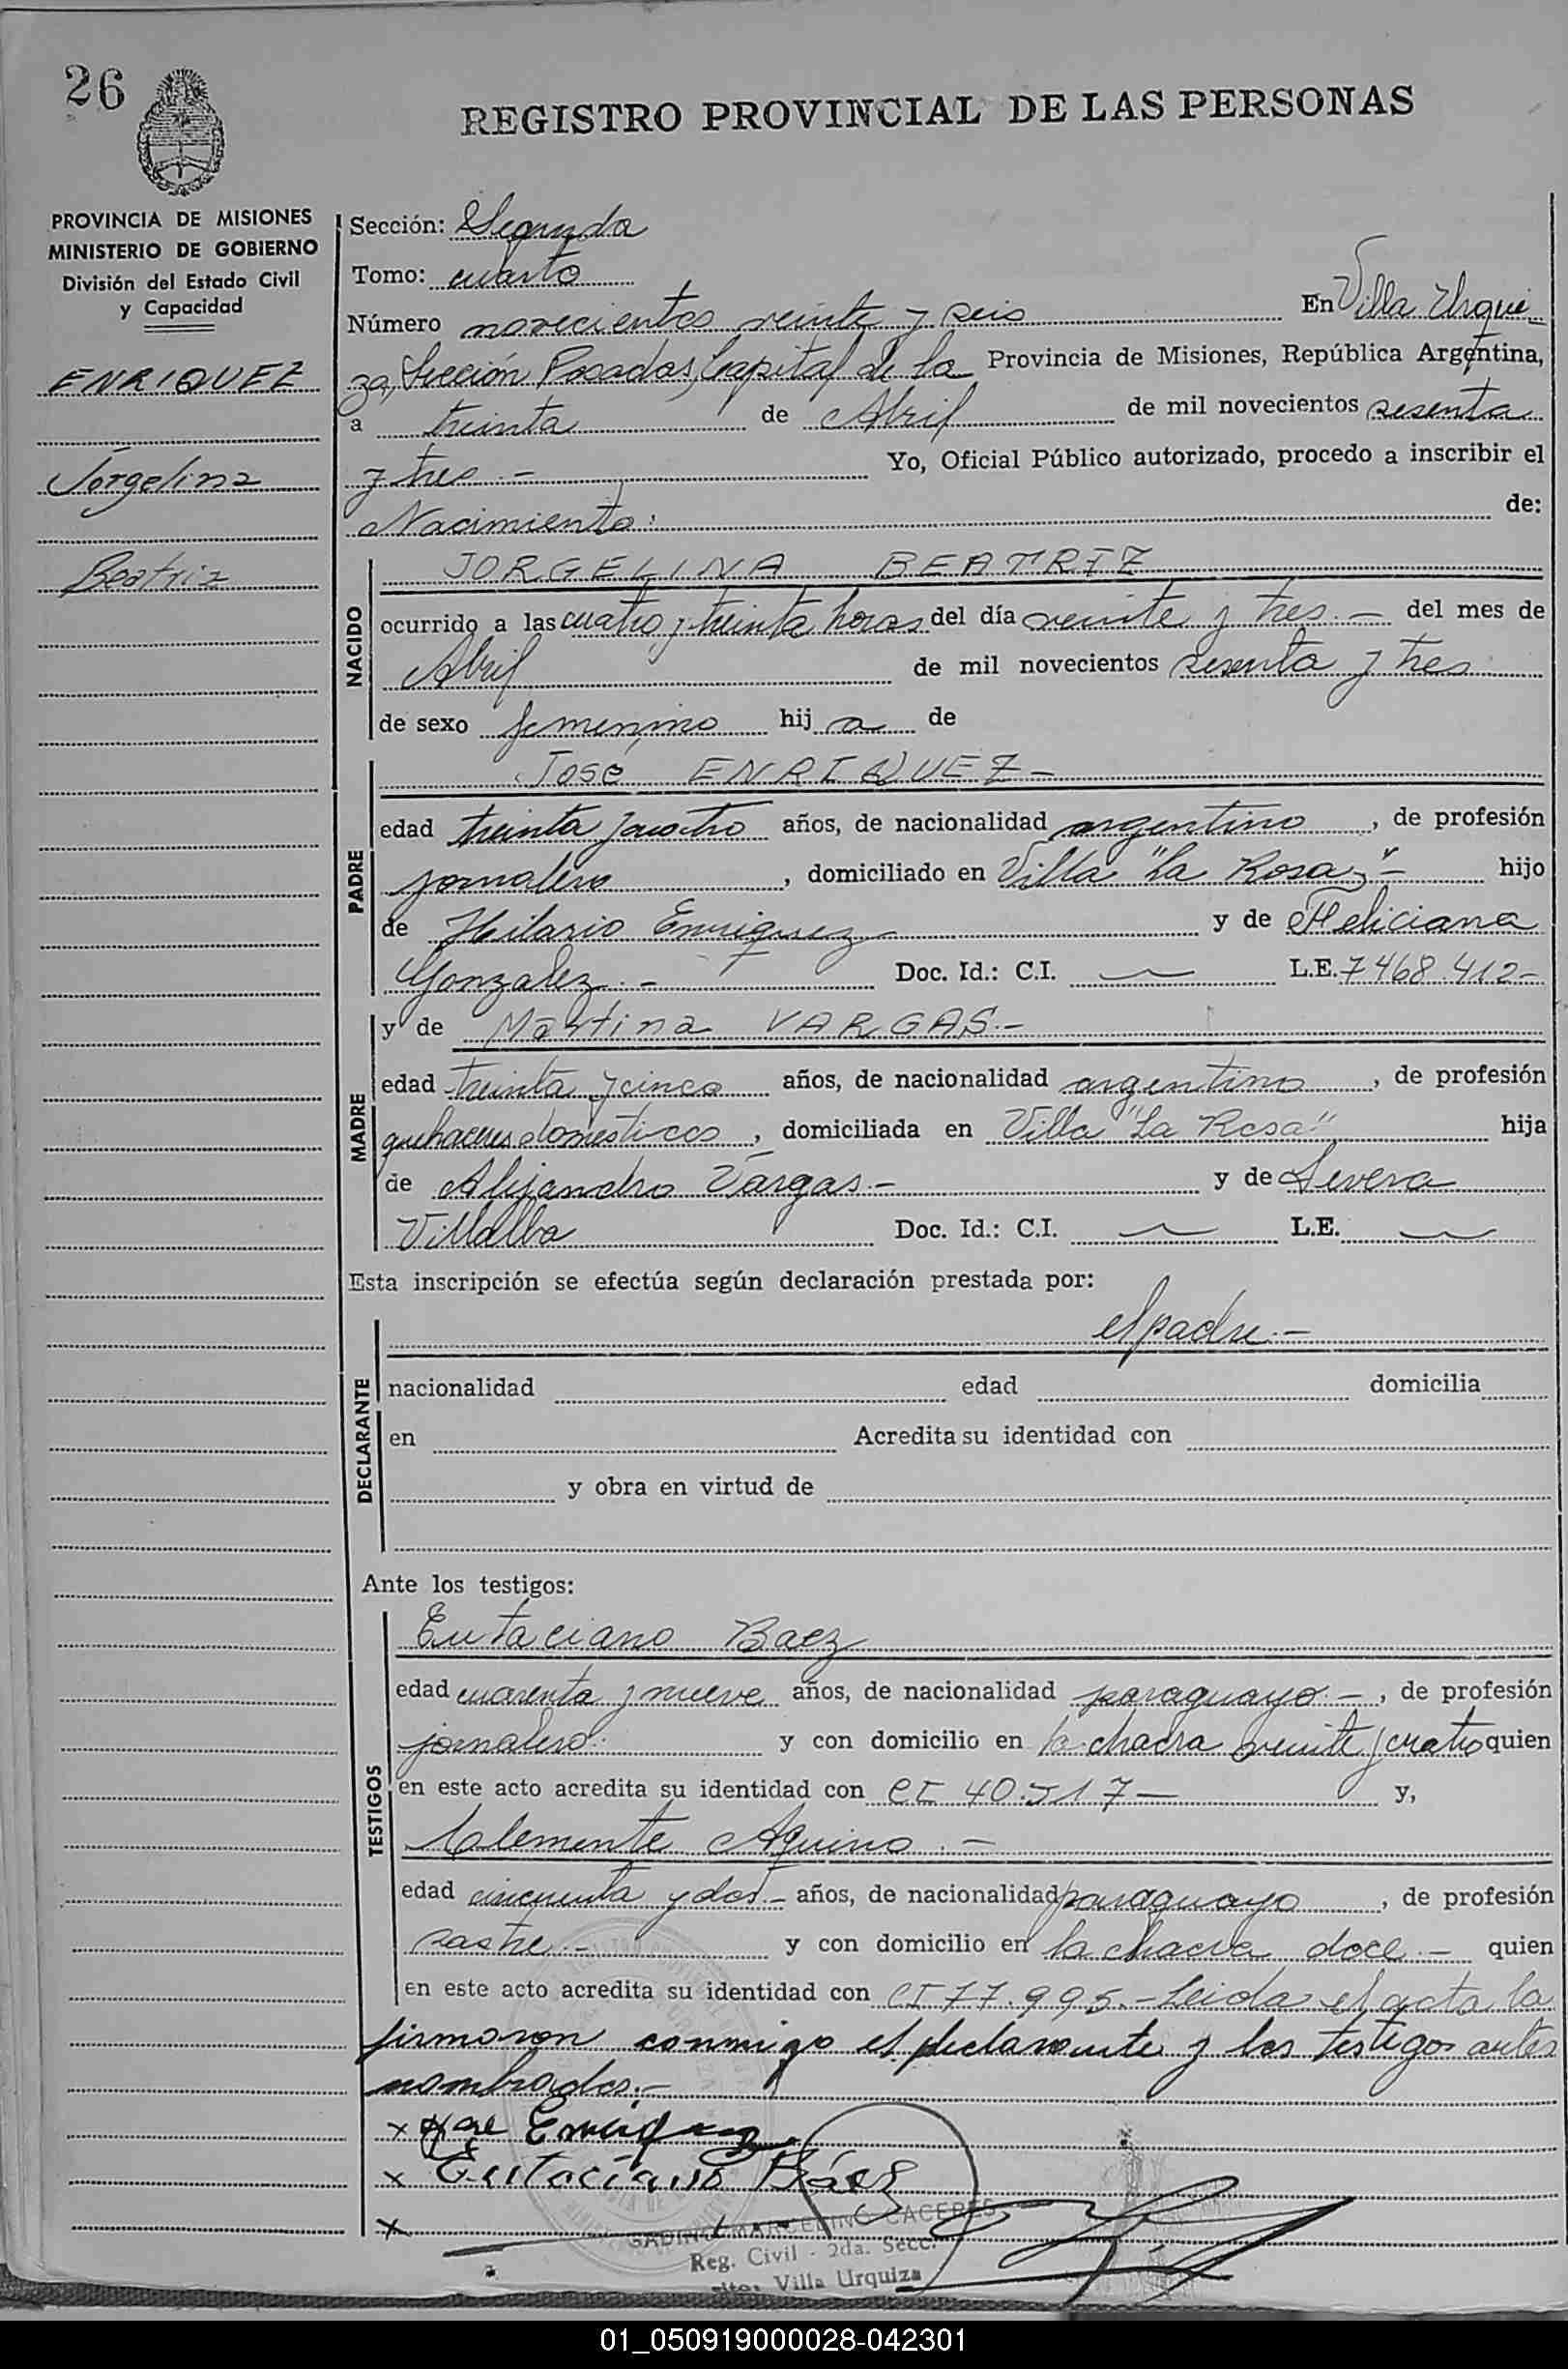 26
REGISTRO PROVINCIAL DE LAS PERSONAS
PROVINCIA DE MISIONES
MINISTERIO DE GOBIERNO
División del Estado Civil
y Capacidad
ENRIQUEZ
Jorgelina
Beatriz
Sección: Segunda
Tomo: cuarto
Número novecientos veinte y seis En Villa Urqui
za, Sección Posadas, Capital de la Provincia de Misiones, República Argentina,
a treinta de Abril de mil novecientos sesenta
y tres.- Yo, Oficial Público autorizado, procedo a inscribir el
Nacimiento: de:
NACIDO
JORGELINA BEATRIZ
ocurrido a las cuatro y treinta horas del día veinte y tres.- del mes de
Abril de mil novecientos sesenta y tres
de sexo femenino hij a de
PADRE
José ENRIQUEZ-
edad treinta y cuatro años, de nacionalidad argentino, de profesión
jornalero, domiciliado en Villa "La Rosa"- hijo
de Hilario Enriquez- y de Feliciana
Gonzalez.- Doc. Id.: C.I. — L.E. 7468.412-
MADRE
y de Martina VARGAS.-
edad treinta y cinco años, de nacionalidad argentina, de profesión
quehaceres domesticos, domiciliada en Villa "La Rosa" hija
de Alejandro Vargas.- y de Severa
Villalba Doc. Id.: C.I. — L.E. —
Esta inscripción se efectúa según declaración prestada por:
DECLARANTE
el padre.-
nacionalidad edad domicilia
en Acredita su identidad con
y obra en virtud de
Ante los testigos:
TESTIGOS
Eutaciano Baez
edad cuarenta y nueve años, de nacionalidad paraguayo.-, de profesión
jornalero. y con domicilio en la chacra veinte y cuatro quien
en este acto acredita su identidad con CI 40.517- y,
Clemente Aquino.-
edad cincuenta y dos.- años, de nacionalidad paraguayo, de profesión
sastre.- y con domicilio en la chacra doce.- quien
en este acto acredita su identidad con CI 77.995.- Leida el acta la
firmaron conmigo el declarante y los testigos antes
nombrados.-
x Jose Enriquez
x Eutaciano Báez
x
MARCELINO CACERES
Reg. Civil - 2da. Secc.
Villa Urquiza
01_050919000028-042301